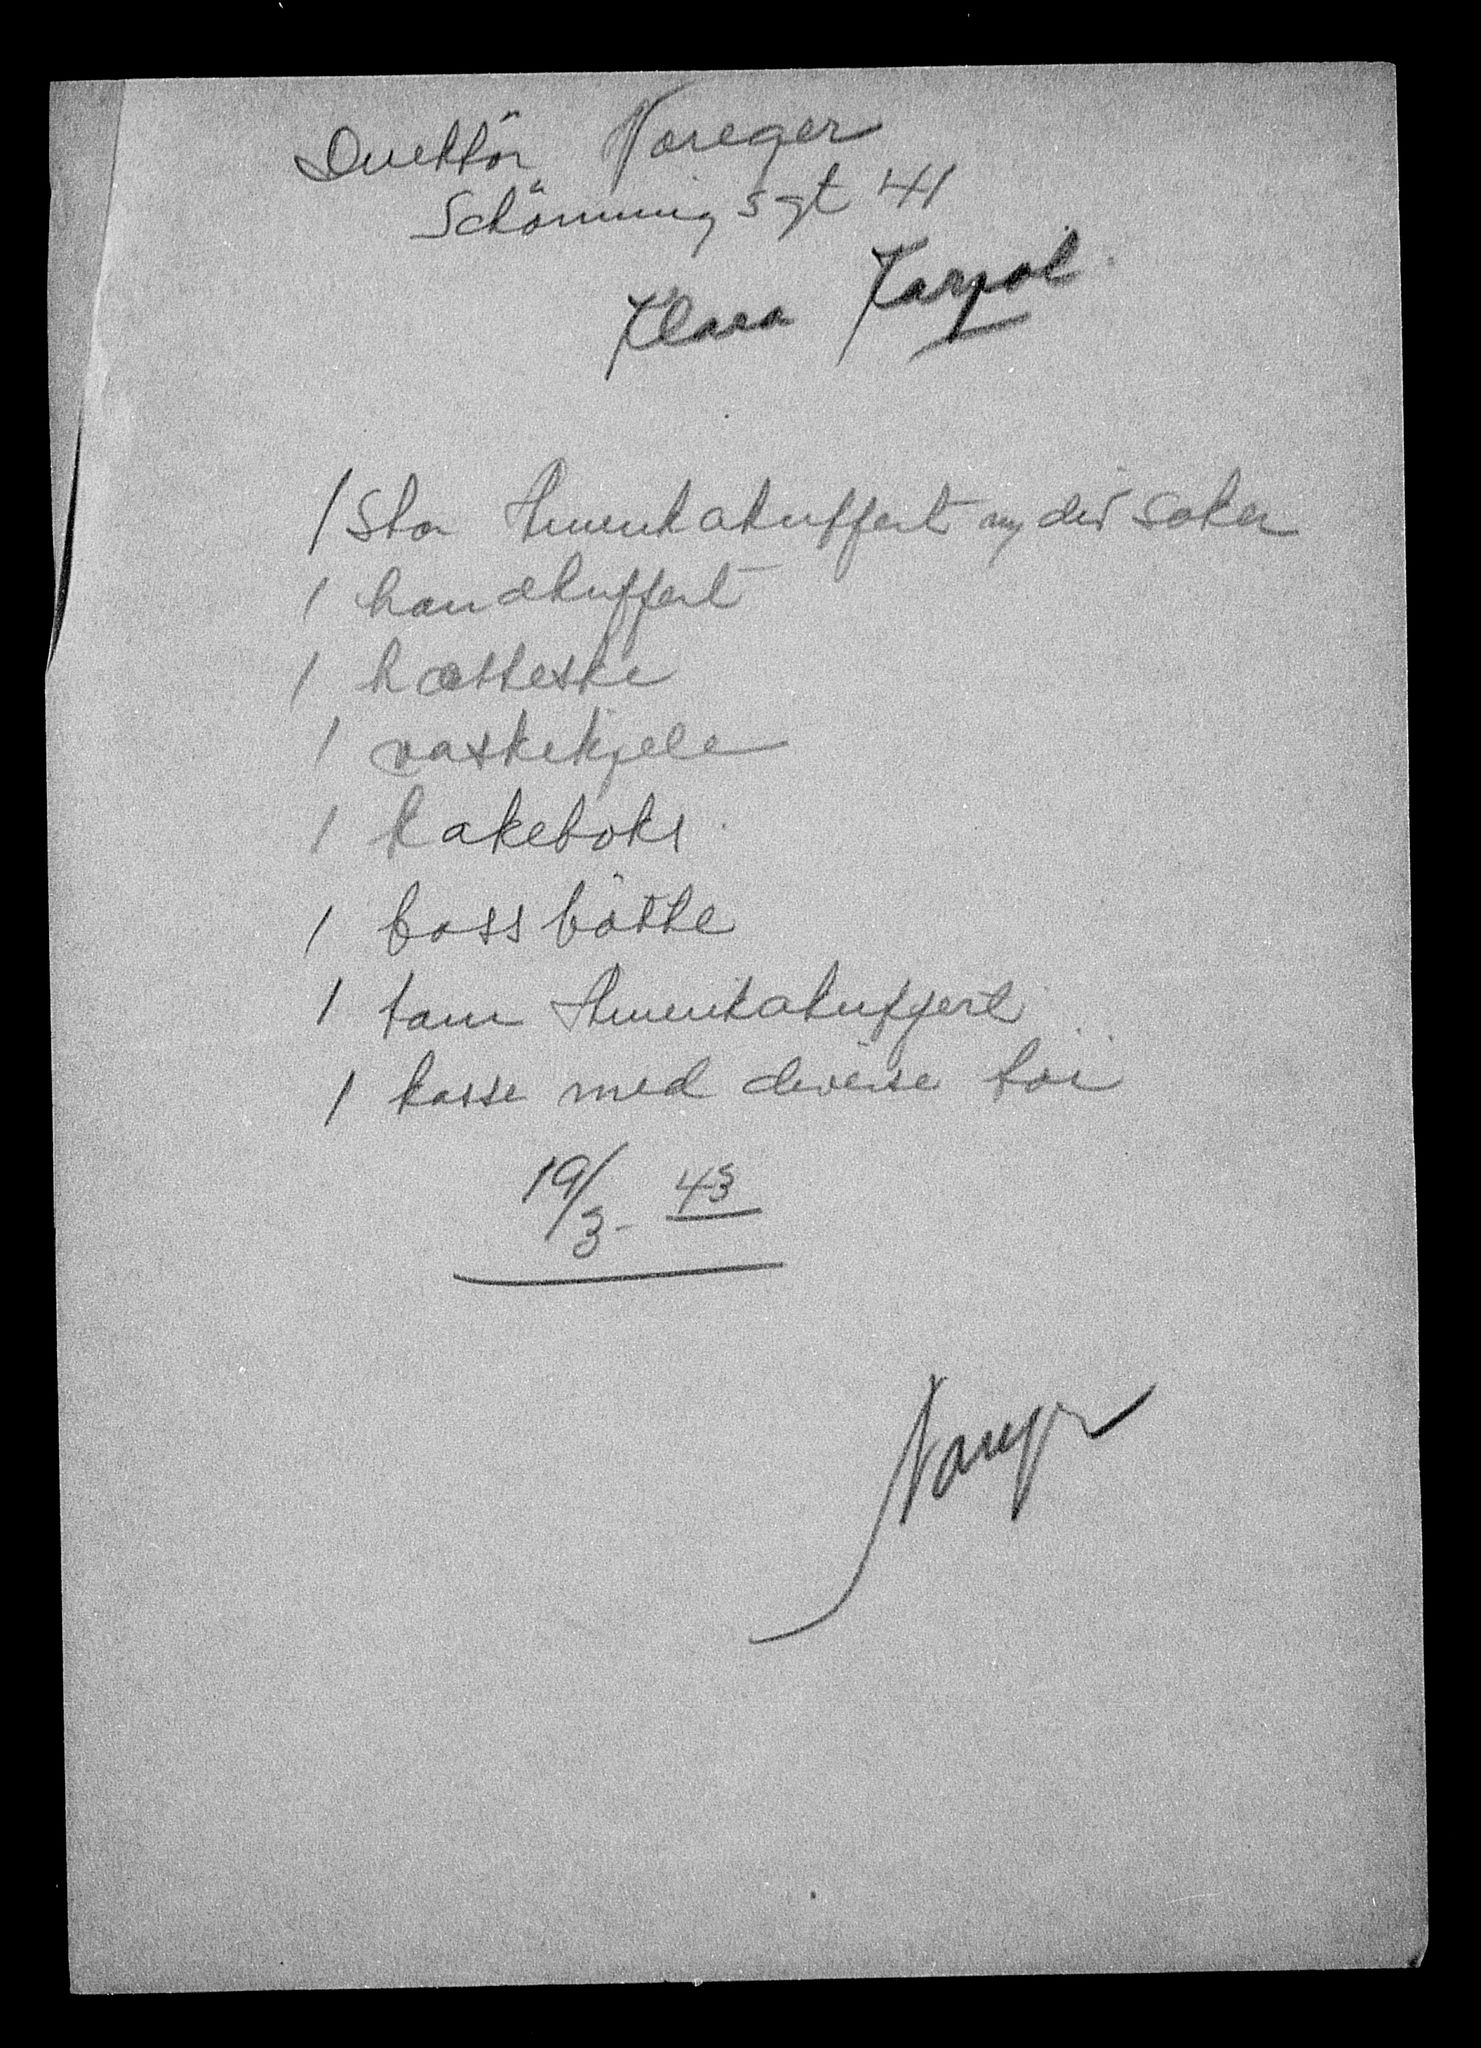 Direktör Noreger
Schönning sgt 41
Klara Karpol.
1 Stor Amerikakuffert m div saker
1 handkuffert
1 hatteske
1 vaskekjele
1 kakeboks
1 bossbötte
1 tom Amerikakuffert
1 kasse med diverse töi
19/3- 43
Noreger